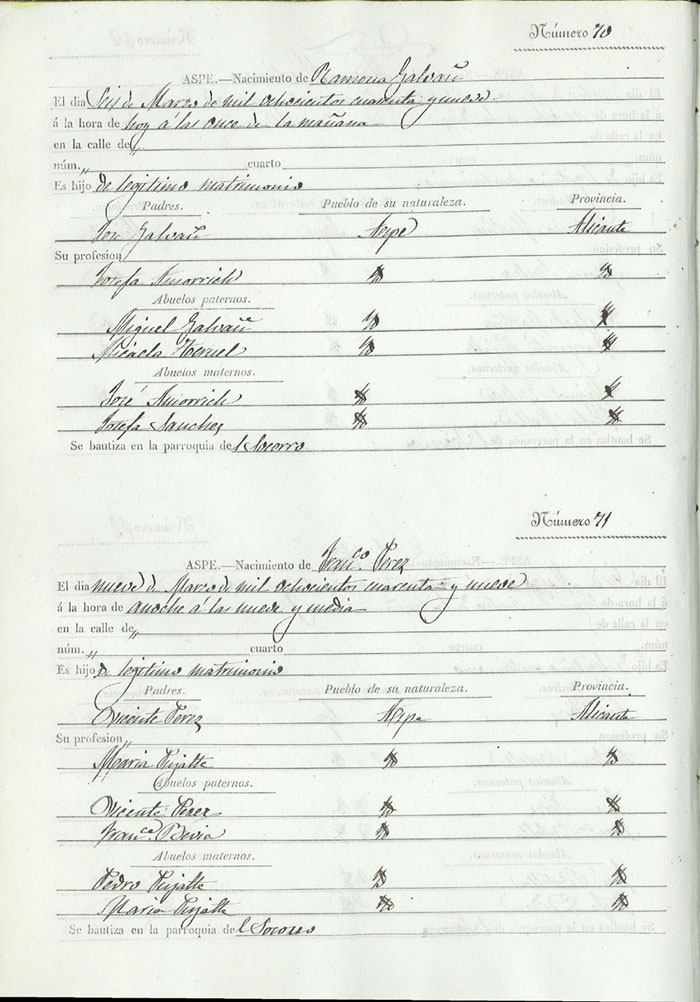 Número 70
ASPE.—Nacimiento de Ramona Galvañ
El dia Seis de Marzo de mil ochocientos cuarenta y nueve
á la hora de hoy á las once de la mañana
en la calle de „
núm. „ cuarto
Es hijo de legitimo matrimonio
Padres. Pueblo de su naturaleza. Provincia.
José Galvañ Aspe Alicante
Su profesion
Josefa Amorrich
Abuelos paternos.
Miguel Galvañ
Micaela Teruel
Abuelos maternos.
José Amorrich
Josefa Sanchez
Se bautiza en la parroquia del Socorro
Número 71
ASPE.—Nacimiento de Franco. Perez
El dia nueve de Marzo de mil ochocientos cuarenta y nueve
á la hora de anoche á las nueve y media
en la calle de „
núm. „ cuarto
Es hijo de legitimo matrimonio
Padres. Pueblo de su naturaleza. Provincia.
Vicente Perez Aspe Alicante
Su profesion „
Maria Pujalte
Abuelos paternos.
Vicente Perez
Franca. Bevia
Abuelos maternos.
Pedro Pujalte
Maria Pujalte
Se bautiza en la parroquia del Socorro